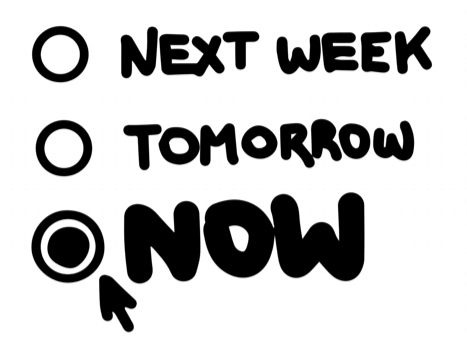 NEXT WEEK
TOMORROW
NOW